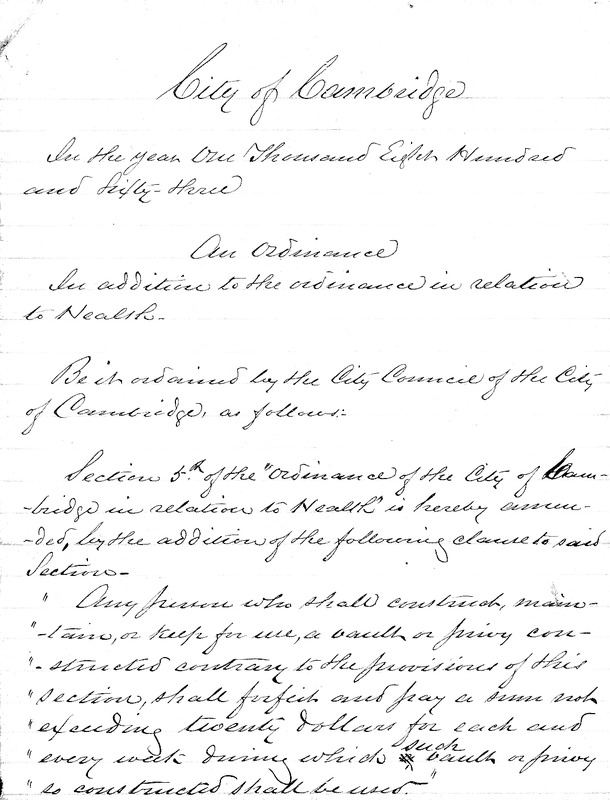 City of Cambridge
In the year One Thousand Eight Hundred
and Sixty-three
An Ordinance
In addition to the ordinance in relation
to Health.
Be it ordained by the City Council of the City
of Cambridge, as follows:
Section 5.th of the "Ordinance of the City of Cam-
-bridge in relation to Health" is hereby amen-
-ded, by the addition of the following clause to said
Section-
" Any person who shall construct, main-
"-tain, or keep for use, a vault or privy con-
"-structed contrary to the provisions of this
"section, shall forfeit and pay a sum not
"exceeding twenty dollars for each and
"every week during which such vault or privy
"so constructed shall be used."